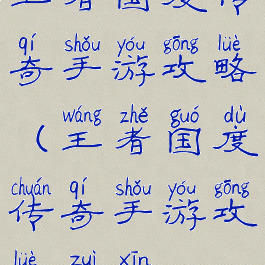 王者国度传
qí shǒu yóu gōng lüè
奇手游攻略
wáng zhě guó dù
（王者国度
chuán qí shǒu yóu gōng
传奇手游攻
lüè zuì xīn